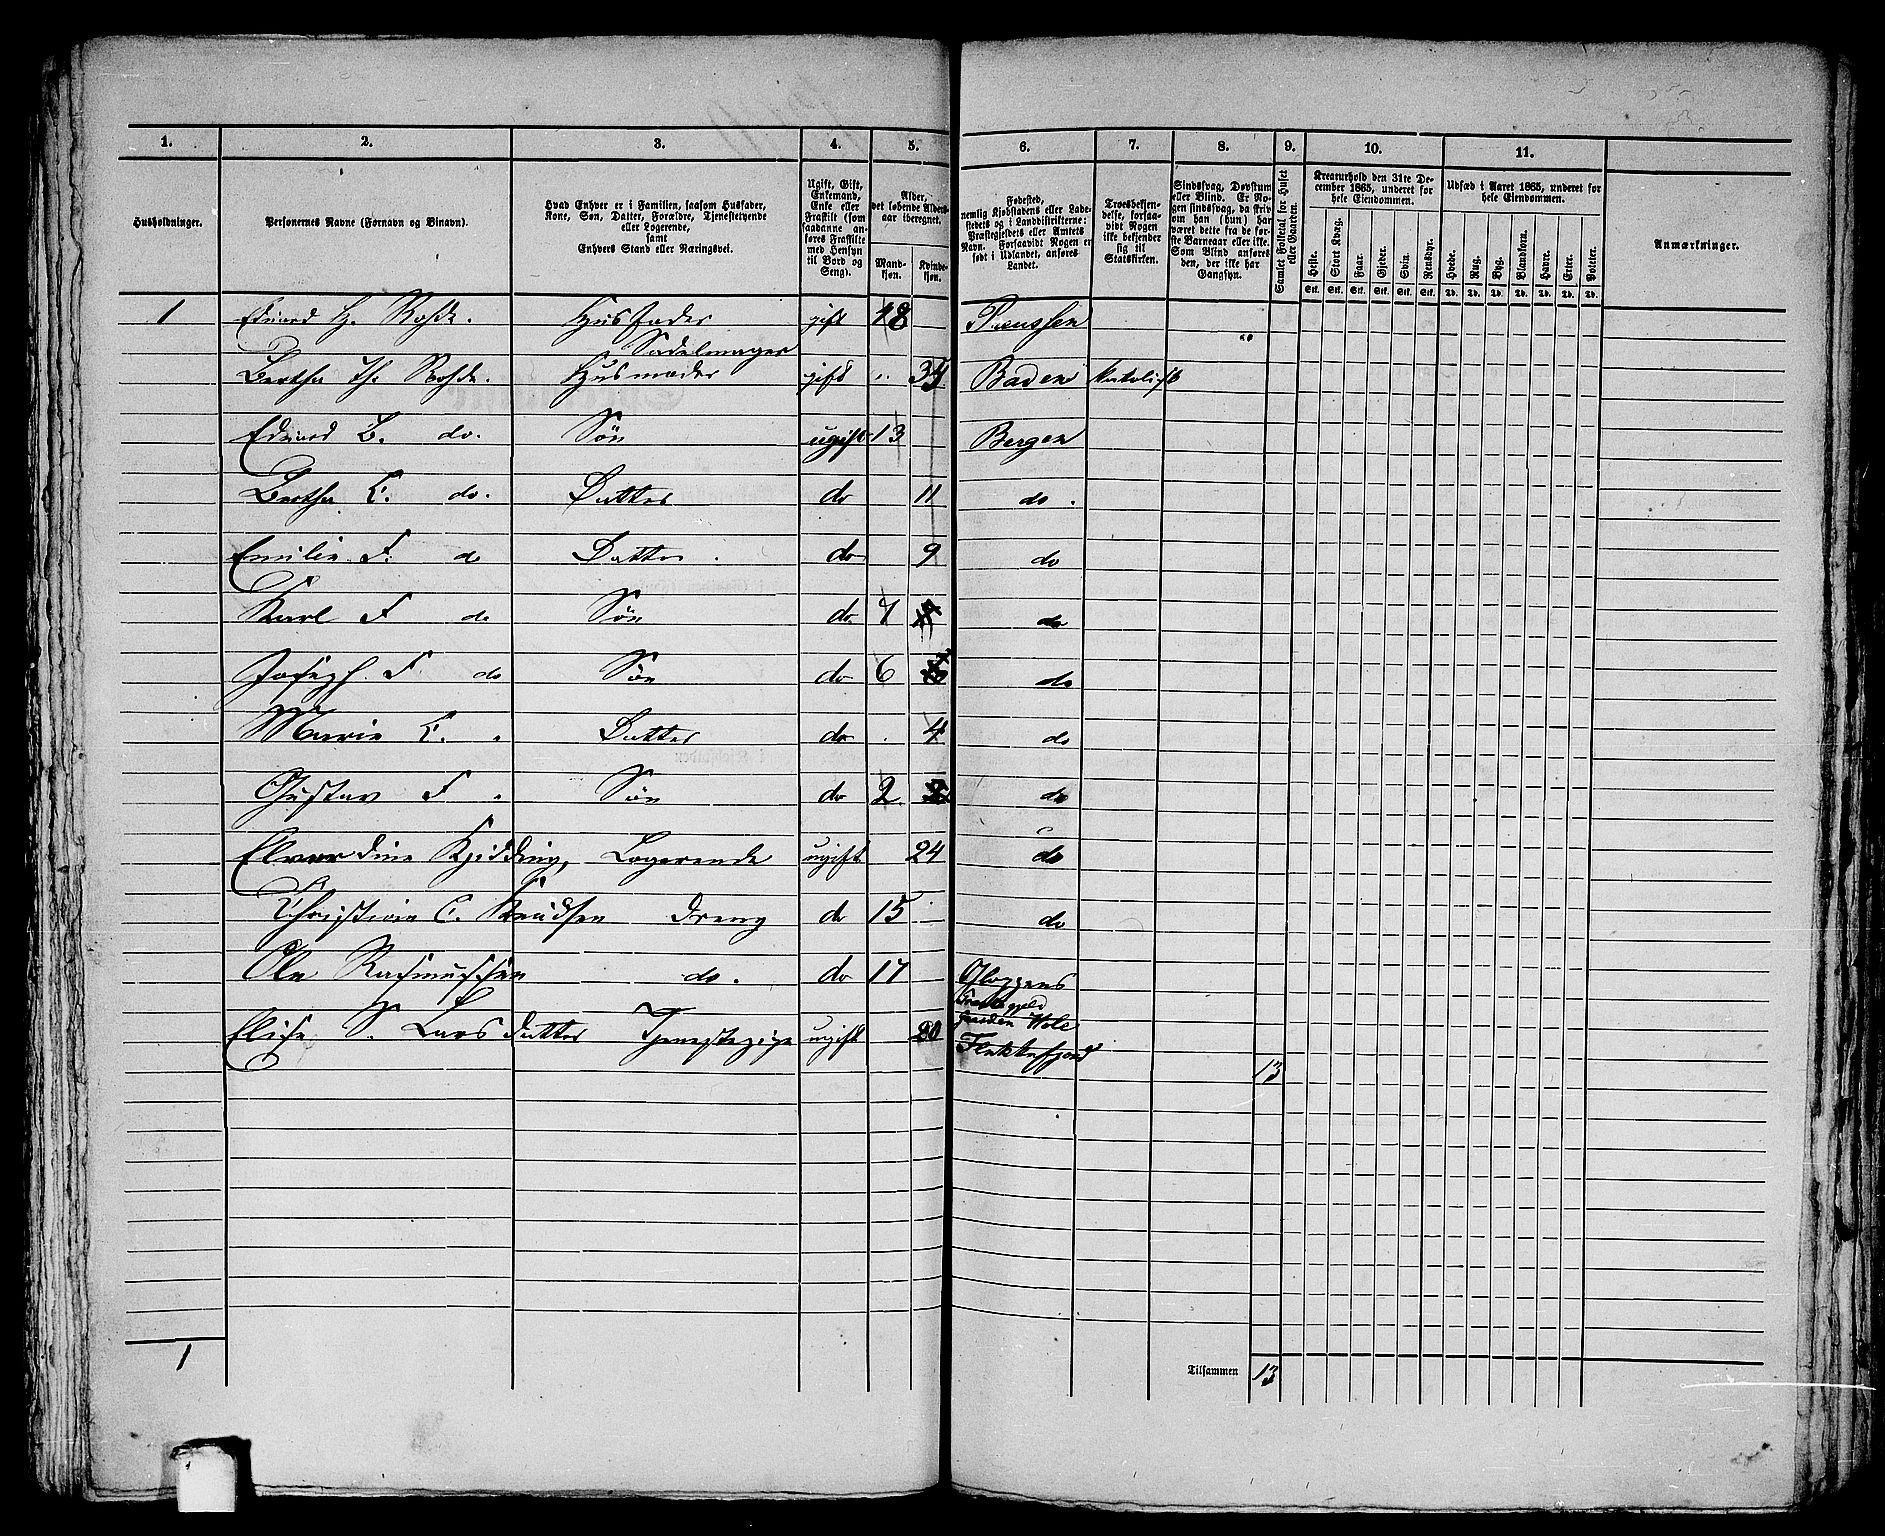 1. 2. 3. 4. 5. 6. 7. 8. 9. 10. 11.
Husholdninger.
Personernes Navne (Fornavn og Binavn).
Hvad Enhver er i Familien, saasom Husfader,
Kone, Søn, Datter, Forældre, Tjenestetyende
eller Logerende,
samt
Enhvers Stand eller Næringsvei.
Ugift, Gift,
Enkemand,
Enke eller
Fraskilt (som
saadanne an-
føres Fraskilte
med Hensyn
til Bord og
Seng).
Alder,
det løbende Alders-
aar iberegnet.
Mand-
kjøn.
Kvinde-
kjøn.
Fødested,
nemlig Kjøbstadens eller Lade-
stedets og i Landdistrikterne:
Præstegjeldets eller Amtets
Navn. Forsaavidt Nogen er
født i Udlandet, anføres
Landet.
Troesbekjen-
delse, forsaa-
vidt Nogen
ikke bekjender
sig til
Statskirken.
Sindssvag, Døvstum
eller Blind. Er No-
gen sindssvag, da skriv
om han (hun) har
været dette fra de før-
ste Barneaar eller ikke.
Som Blind anføres
den, der ikke har
Gangsyn.
Samlet Folketal for Huset
eller Gaarden.
Kreaturhold den 31te De-
cember 1865, underet for
hele Eiendommen.
Heste. Stort Kvæg. Faar. Gjeder. Svin. Rensdyr.
Stk. Stk. Stk. Stk. Stk. Stk.
Udsæd i Aaret 1865, underet for
hele Eiendommen.
Hvede. Rug. Byg. Blandkorn. Havre. Erter. Poteter.
Td. Td. Td. Td. Td. Td. Td.
Anmærkninger.
1 Eduard H. Rohde. Husfader gift 48 Preussen
Sadelmager
Bertha Th. Rohde. Husmoder gift 35 Baden katolisk
Eduard B. do. Søn ugift 13 Bergen
Bertha C. do. Datter do 11 do.
Emilie F. do Datter. do 9 do
Karl F do Søn do. 7 do
Joseph. F do Søn do 6 do
Marie C. " Datter do 4 do
Gustav F " Søn do 2 do
Elverdine Kjidding, Logerende ugift 24 do
Christian C. Knudsen Dreng do 15 do
Ole Rasmussen do. do 17
Præstegjeld
Elise S. Larsdatter Tjenestepige ugift 20 Flekkefjord
13
1 Tilsammen 13